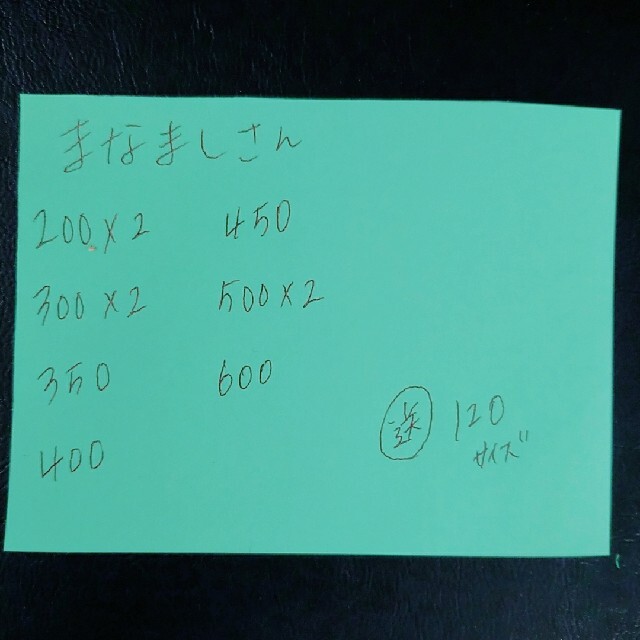 まなましさん
200×2
300×2
350
400
450
500×2
600
送 120
サイズ